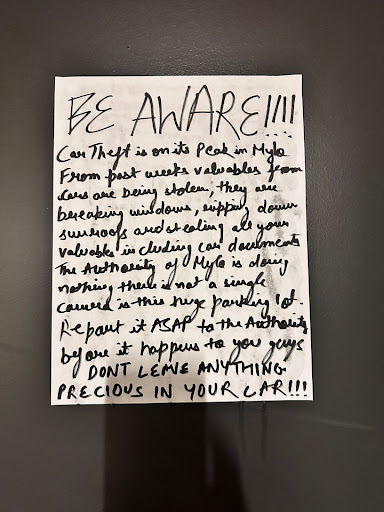 BE AWARE!!!!
Car Theft is on its Peak in Mylo
From past weeks valuables from
cars are being stolen, they are
breaking windows, ripping down
sunroofs and stealing all your
valuables including car documents
The Authority of Mylo is doing
nothing there is not a single
camera in this huge parking lot.
Report it ASAP to the Authority
before it happens to you guys
DONT LEAVE ANYTHING
PRECIOUS IN YOUR CAR!!!